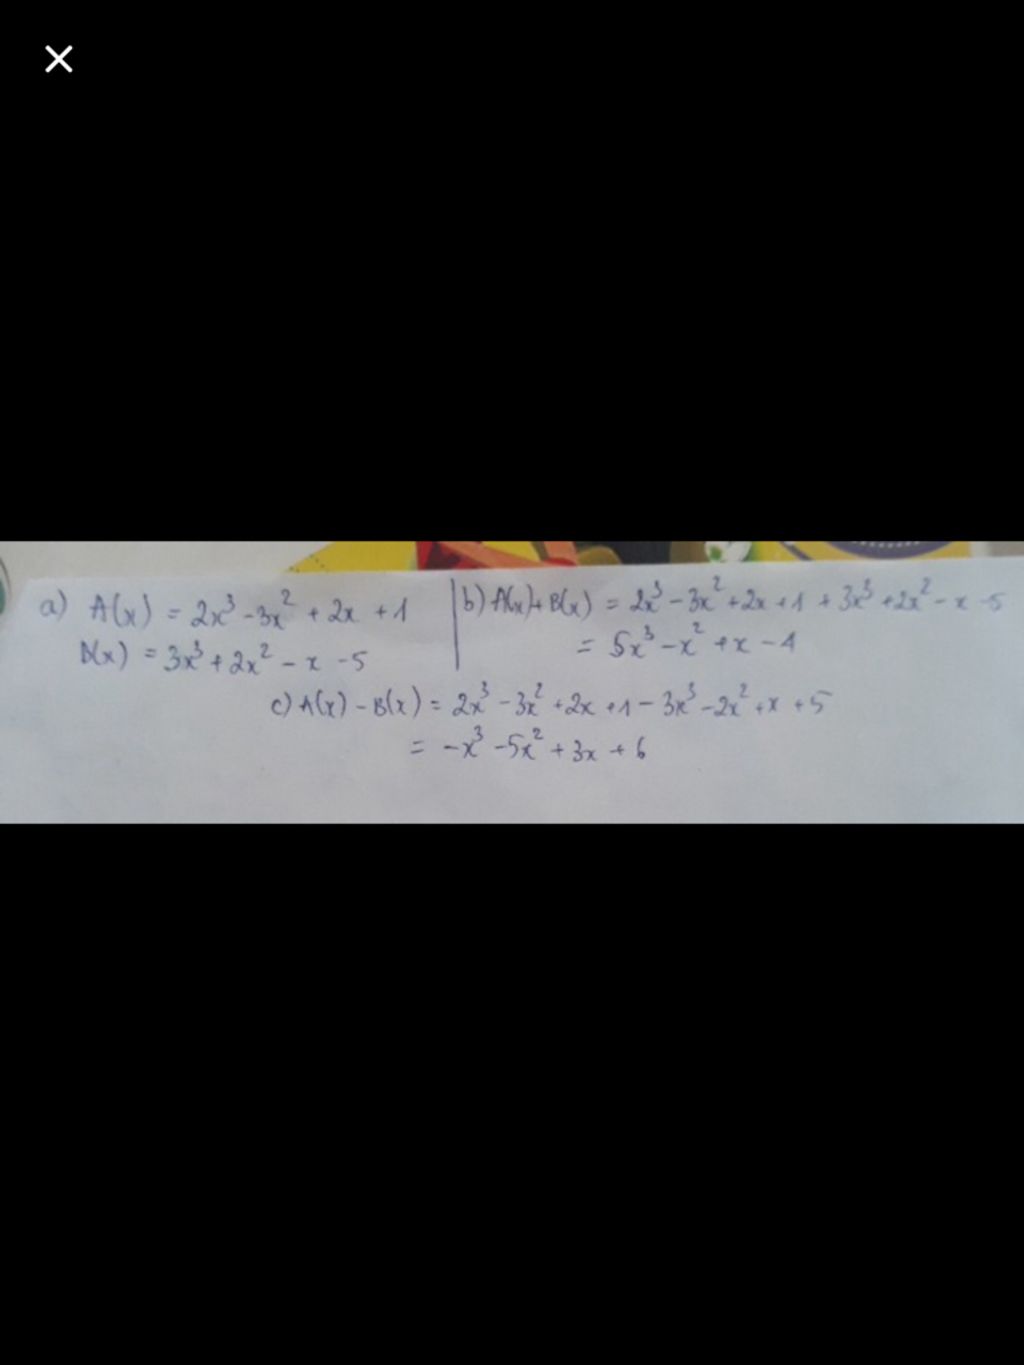 a) A(x) = 2x³ - 3x² + 2x + 1
B(x) = 3x³ + 2x² - x - 5
b) A(x) + B(x) = 2x³ - 3x² + 2x + 1 + 3x³ + 2x² - x - 5
= 5x³ - x² + x - 4
c) A(x) - B(x) = 2x³ - 3x² + 2x + 1 - 3x³ - 2x² + x + 5
= -x³ - 5x² + 3x + 6